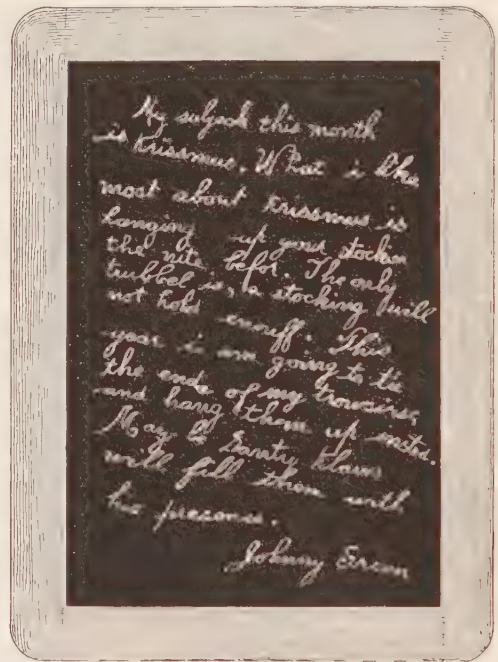 My subjeck this month
is Krissmus. What i like
most about Krissmus is
hanging up your stockin
the nite befor. The only
trubbel is, a stocking will
not hold enouff. This
year i am going to tie
the ends of my trowsers
and hang them up insted.
May be Santy Klaws
will fill them with
his presence.
Johnny